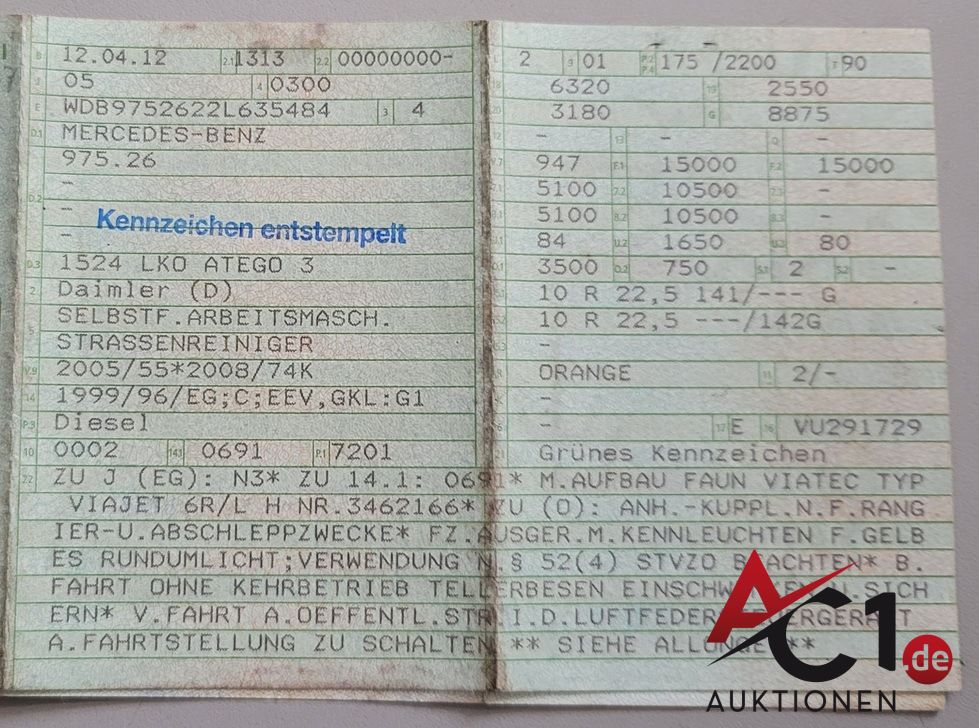 B 12.04.12 2.1 1313 2.2 00000000-
J 05 4 0300
E WDB9752622L635484 3 4
D.1 MERCEDES-BENZ
975.26
-
D.2 -
-
Kennzeichen entstempelt
D.3 1524 LKO ATEGO 3
2 Daimler (D)
5 SELBSTF.ARBEITSMASCH.
STRASSENREINIGER
V.9 2005/55*2008/74K
14 1999/96/EG;C;EEV,GKL:G1
P.3 Diesel
10 0002 14.1 0691 P.1 7201
L 2 9 01 P.2 P.4 175 /2200 T 90
18 6320 19 2550
20 3180 G 8875
12 - 13 - Q -
V.7 947 F.1 15000 F.2 15000
7.1 5100 7.2 10500 7.3 -
8.1 5100 8.2 10500 8.3 -
U.1 84 U.2 1650 U.3 80
O.1 3500 O.2 750 S.1 2 S.2 -
10 R 22,5 141/--- G
10 R 22,5 ---/142G
-
R ORANGE 11 2/-
-
- 17 E 16 VU291729
21 Grünes Kennzeichen
22 ZU J (EG): N3* ZU 14.1: 0691* M.AUFBAU FAUN VIATEC TYP
VIAJET 6R/L H NR.3462166* ZU (O): ANH.-KUPPL.N.F.RANG
IER-U.ABSCHLEPPZWECKE* FZ.AUSGER.M.KENNLEUCHTEN F.GELB
ES RUNDUMLICHT;VERWENDUNG N.§ 52(4) STVZO BEACHTEN* B.
FAHRT OHNE KEHRBETRIEB TELLERBESEN EINSCHWENKEN U.SICH
ERN* V.FAHRT A.OEFFENTL.STR. I.D.LUFTFEDER
A.FAHRTSTELLUNG ZU SCHALTEN ** SIEHE ALLONGE **
AC1.de
AUKTIONEN